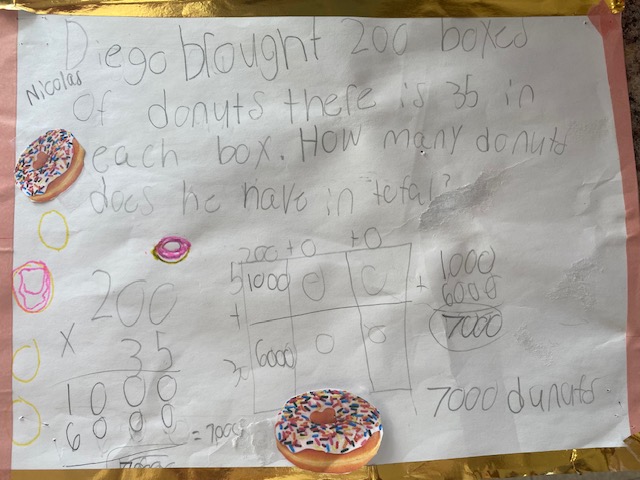 Diego brought 200 boxed
Nicolas
Of donuts there is 35 in
each box. How many donuts
does he have in total?
200 + 0 + 0
5 1000 0 0
+
30 6000 0 0
+ 1000
6000
7000
200
x 35
1000
6000 = 7000
7000
7000 dunuts